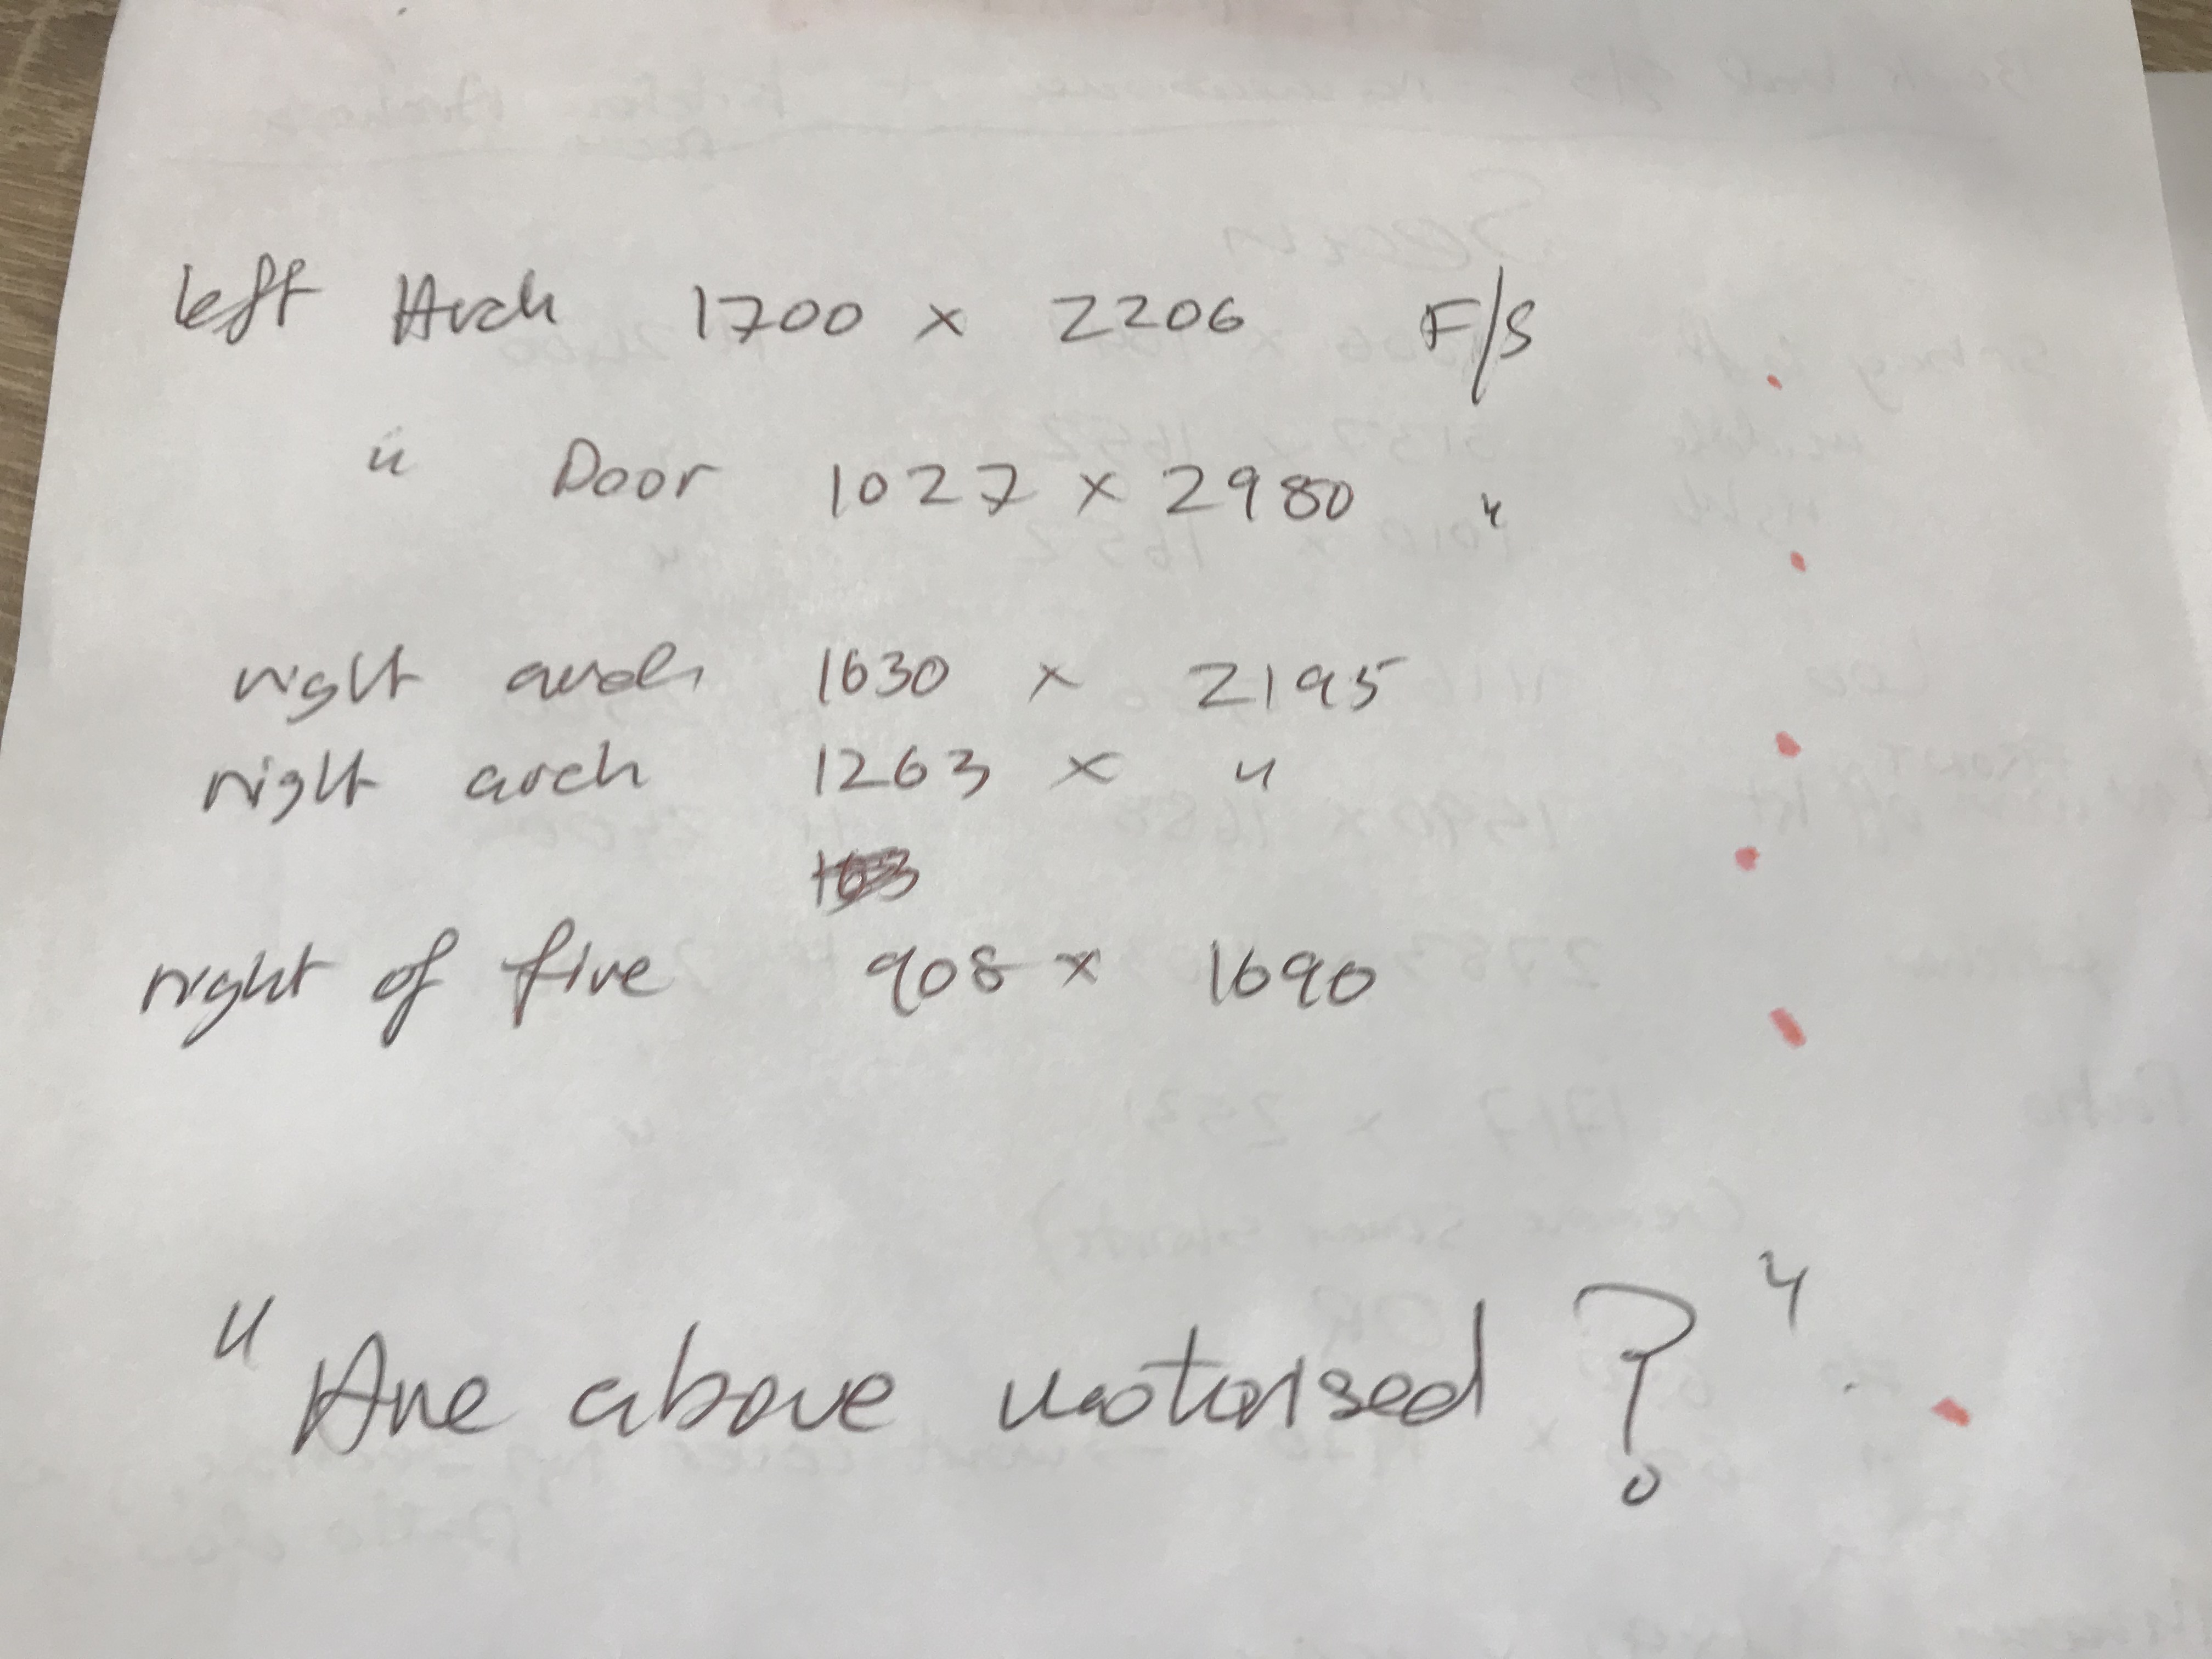 left Arch 1700 x 2206 F/S
" Door 1027 x 2980 "
right arch 1630 x 2195
right arch 1263 x "
right of five 908 x 1690
"Are above motorised?"